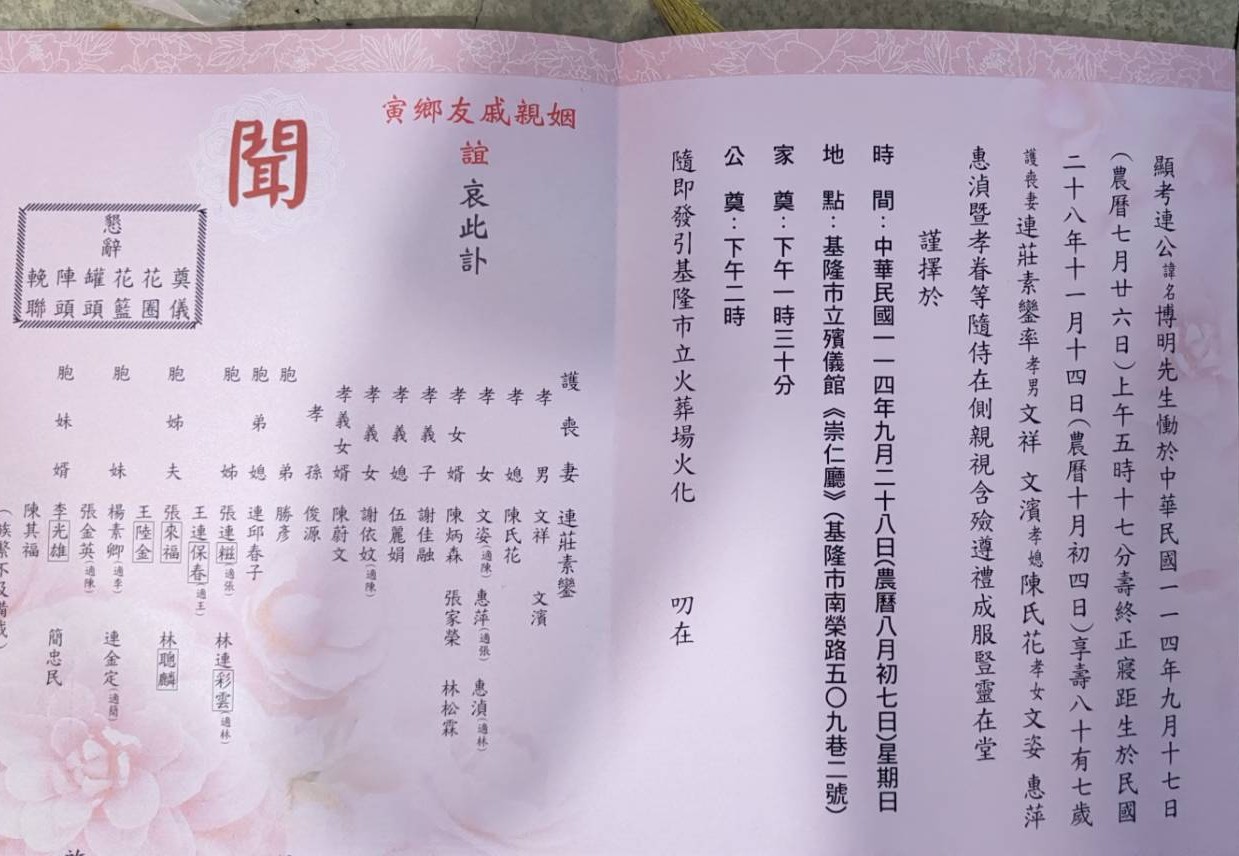 顯考連公諱名博明先生慟於中華民國一一四年九月十七日
(農曆七月廿六日)上午五時十七分壽終正寢距生於民國
二十八年十一月十四日(農曆十月初四日)享壽八十有七歲
護喪妻連莊素鑾率孝男文祥 文濱孝媳陳氏花孝女文姿 惠萍
惠湞暨孝眷等隨侍在側親視含殮遵禮成服豎靈在堂
謹擇於
時 間:中華民國一一四年九月二十八日(農曆八月初七日)星期日
地 點:基隆市立殯儀館《崇仁廳》(基隆市南榮路五〇九巷二號)
家 奠:下午一時三十分
公 奠:下午二時
隨即發引基隆市立火葬場火化 叨在
姻親戚友鄉寅
誼哀此訃
聞
懇辭
奠儀
花圈
花籃
罐頭
陣頭
輓聯
護喪妻 連莊素鑾
孝男 文祥 文濱
孝媳 陳氏花
孝女 文姿(適陳) 惠萍(適張) 惠湞(適林)
孝女婿 陳炳森 張家榮 林松霖
孝義子 謝佳融
孝義媳 伍麗娟
孝義女 謝依妏(適陳)
孝義女婿 陳蔚文
孝孫 俊源
胞弟 勝彥
胞弟媳 連邱春子
胞姊 張連糍(適張) 林連彩雲(適林)
王連保春(適王)
胞姊夫 張來福 林聰麟
王陸金
胞妹 楊素卿(適李) 連金定(適簡)
張金英(適陳)
胞妹婿 李光雄 簡忠民
陳其福
(族繁不及備載)